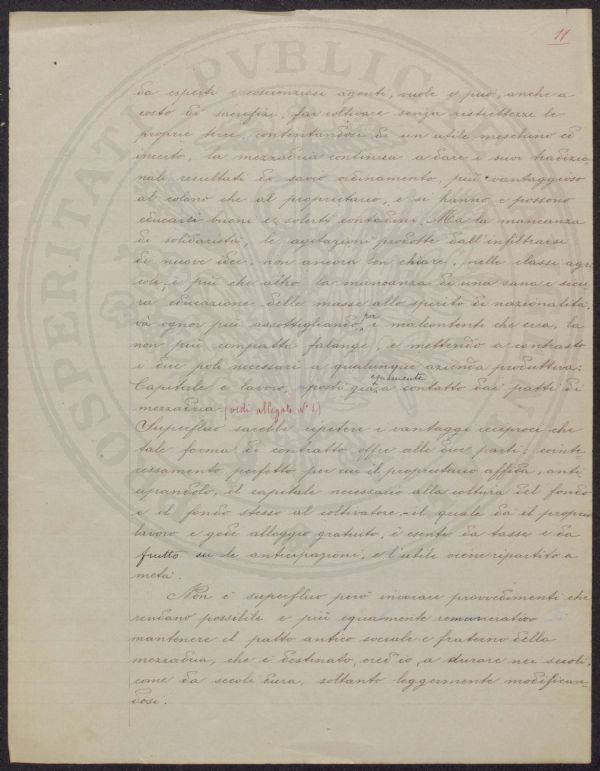 11
da esperti e coscienziosi agenti, vuole e può, anche a
costo di sacrifizi, far coltivare senza ristrettezze le
proprie terre, contentandosi di un utile meschino ed
incerto, la mezzadria continua a dare i suoi tradizio
nali resultati di savio ordinamento, più vantaggioso
al colono che al proprietario, e si hanno e possono
educarsi buoni e solerti contadini. Ma la mancanza
di solidarietà, le agitazioni prodotte dall'infiltrarsi
di nuove idee, non ancora ben chiare, nelle classi agri
cole, e più che altro la mancanza di una sana e sicu
ra educazione delle masse allo spirito di nazionalità,
và ognor più assottigliando, fra i malcontenti che crea, la
non più compatta falange, e mettendo a contrasto
i due poli necessari a qualunque azienda produttiva:
Capitale e lavoro, posti già equamente a contatto dai patti di
mezzadria. (vedi allegato N° 1)
Superfluo sarebbe ripetere i vantaggi reciproci che
tale forma di contratto offre alle due parti: cointe
ressamento perfetto per cui il proprietario affida, anti
cipandolo, il capitale necessario alla coltura del fondo
e il fondo stesso al coltivatore, il quale dà il proprio
lavoro e gode alloggio gratuito, è esente da tasse e da
frutto su le anticipazioni, e l'utile viene ripartito a
metà.
Non è superfluo però invocare provvedimenti che
rendano possibile e più equamente remunerativo
mantenere il patto antico sociale e fraterno della
mezzadria, che è destinato, cred'io, a durare nei secoli,
come da secoli dura, soltanto leggermente modifican-
dosi.
PROSPERITATI PVBLICAE